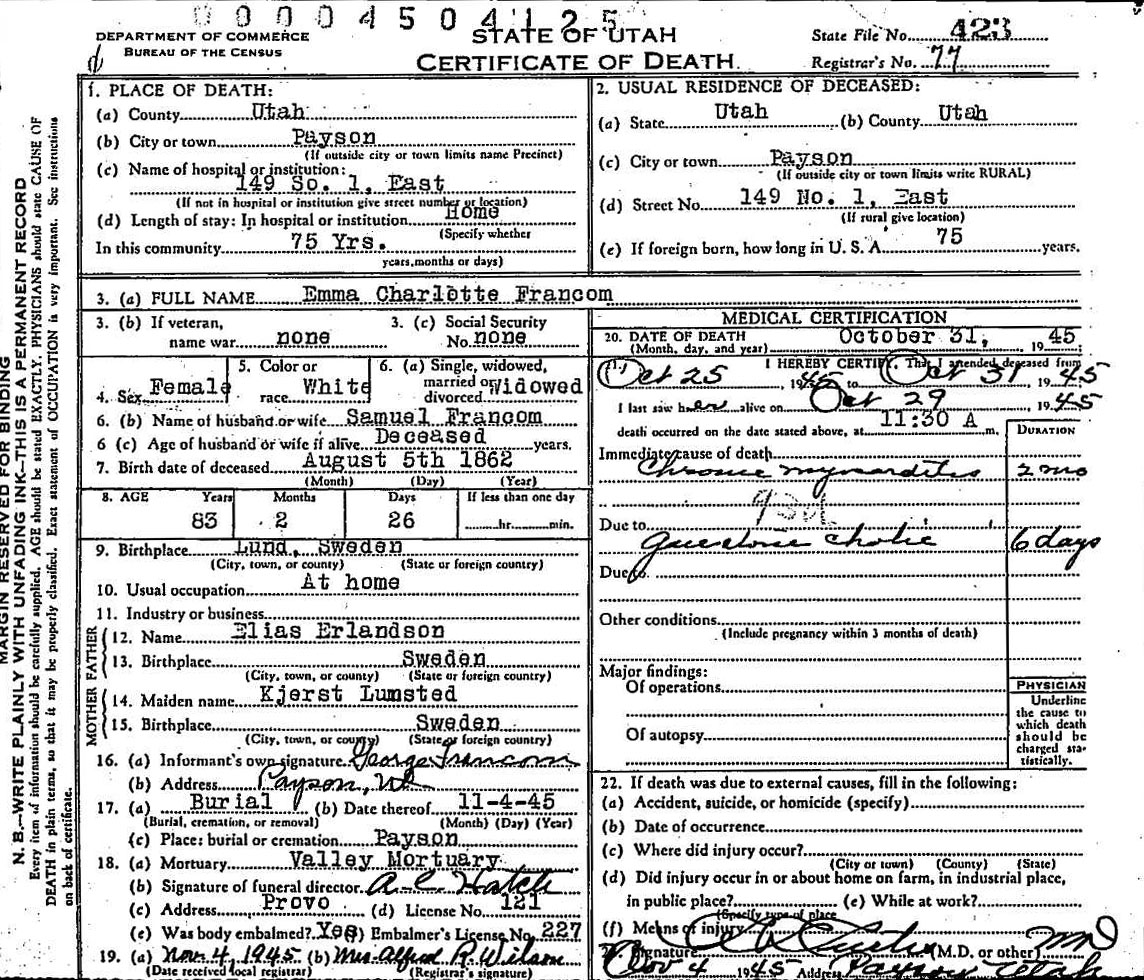 00004504125
DEPARTMENT OF COMMERCE
BUREAU OF THE CENSUS
STATE OF UTAH
CERTIFICATE OF DEATH
State File No. 423
Registrar's No. 77
MARGIN RESERVED FOR BINDING
N. B.—WRITE PLAINLY WITH UNFADING INK—THIS IS A PERMANENT RECORD
Every item of information should be carefully supplied. AGE should be stated EXACTLY. PHYSICIANS should state CAUSE OF
DEATH in plain terms, so that it may be properly classified. Exact statement of OCCUPATION is very important. See instructions
on back of certificate.
1. PLACE OF DEATH:
(a) County Utah
(b) City or town Payson
(If outside city or town limits name Precinct)
(c) Name of hospital or institution:
149 So. 1, East
(If not in hospital or institution give street number or location)
(d) Length of stay: In hospital or institution Home
(Specify whether
In this community 75 Yrs.
years, months or days)
2. USUAL RESIDENCE OF DECEASED:
(a) State Utah (b) County Utah
(c) City or town Payson
(If outside city or town limits write RURAL)
(d) Street No. 149 No. 1, East
(If rural give location)
(e) If foreign born, how long in U. S. A. 75 years.
3. (a) FULL NAME Emma Charlotte Francom
3. (b) If veteran, name war none
3. (c) Social Security No. none
4. Sex Female
5. Color or race White
6. (a) Single, widowed, married or divorced Widowed
6. (b) Name of husband or wife Samuel Francom
6 (c) Age of husband or wife if alive Deceased years.
7. Birth date of deceased August 5th 1862
(Month) (Day) (Year)
8. AGE Years Months Days If less than one day
83 2 26 hr. min.
9. Birthplace Lund, Sweden
(City, town, or county) (State or foreign country)
10. Usual occupation At home
11. Industry or business
FATHER
12. Name Elias Erlandson
13. Birthplace Sweden
(City, town, or county) (State or foreign country)
MOTHER
14. Maiden name Kjerst Lumsted
15. Birthplace Sweden
(City, town, or county) (State or foreign country)
16. (a) Informant's own signature George Francom
(b) Address Payson, Ut
17. (a) Burial (b) Date thereof 11-4-45
(Burial, cremation, or removal) (Month) (Day) (Year)
(c) Place: burial or cremation Payson
18. (a) Mortuary Valley Mortuary
(b) Signature of funeral director A. C. Hatch
(c) Address Provo (d) License No. 121
(e) Was body embalmed? Yes (f) Embalmer's License No. 227
19. (a) Nov. 4, 1945 (b) Mrs. Alfred R. Wilson
(Date received local registrar) (Registrar's signature)
MEDICAL CERTIFICATION
20. DATE OF DEATH October 31, 1945
(Month, day, and year)
I HEREBY CERTIFY, That I attended deceased from
Oct 25 1945 to Oct 31 1945
I last saw her alive on Oct 29 1945
death occurred on the date stated above, at 11:30 A m.
DURATION
Immediate cause of death
Chronic myocarditis 2 mo
93d
Due to
Gallstone cholic 6 days
Due to
Other conditions
(Include pregnancy within 3 months of death)
Major findings:
Of operations
Of autopsy
PHYSICIAN
Underline
the cause to
which death
should be
charged sta-
tistically.
22. If death was due to external causes, fill in the following:
(a) Accident, suicide, or homicide (specify)
(b) Date of occurrence
(c) Where did injury occur?
(City or town) (County) (State)
(d) Did injury occur in or about home on farm, in industrial place,
in public place? (e) While at work?
(Specify type of place
(f) Means of injury
Signature (M.D. or other) MD
Nov 4 1945 Address Payson Utah